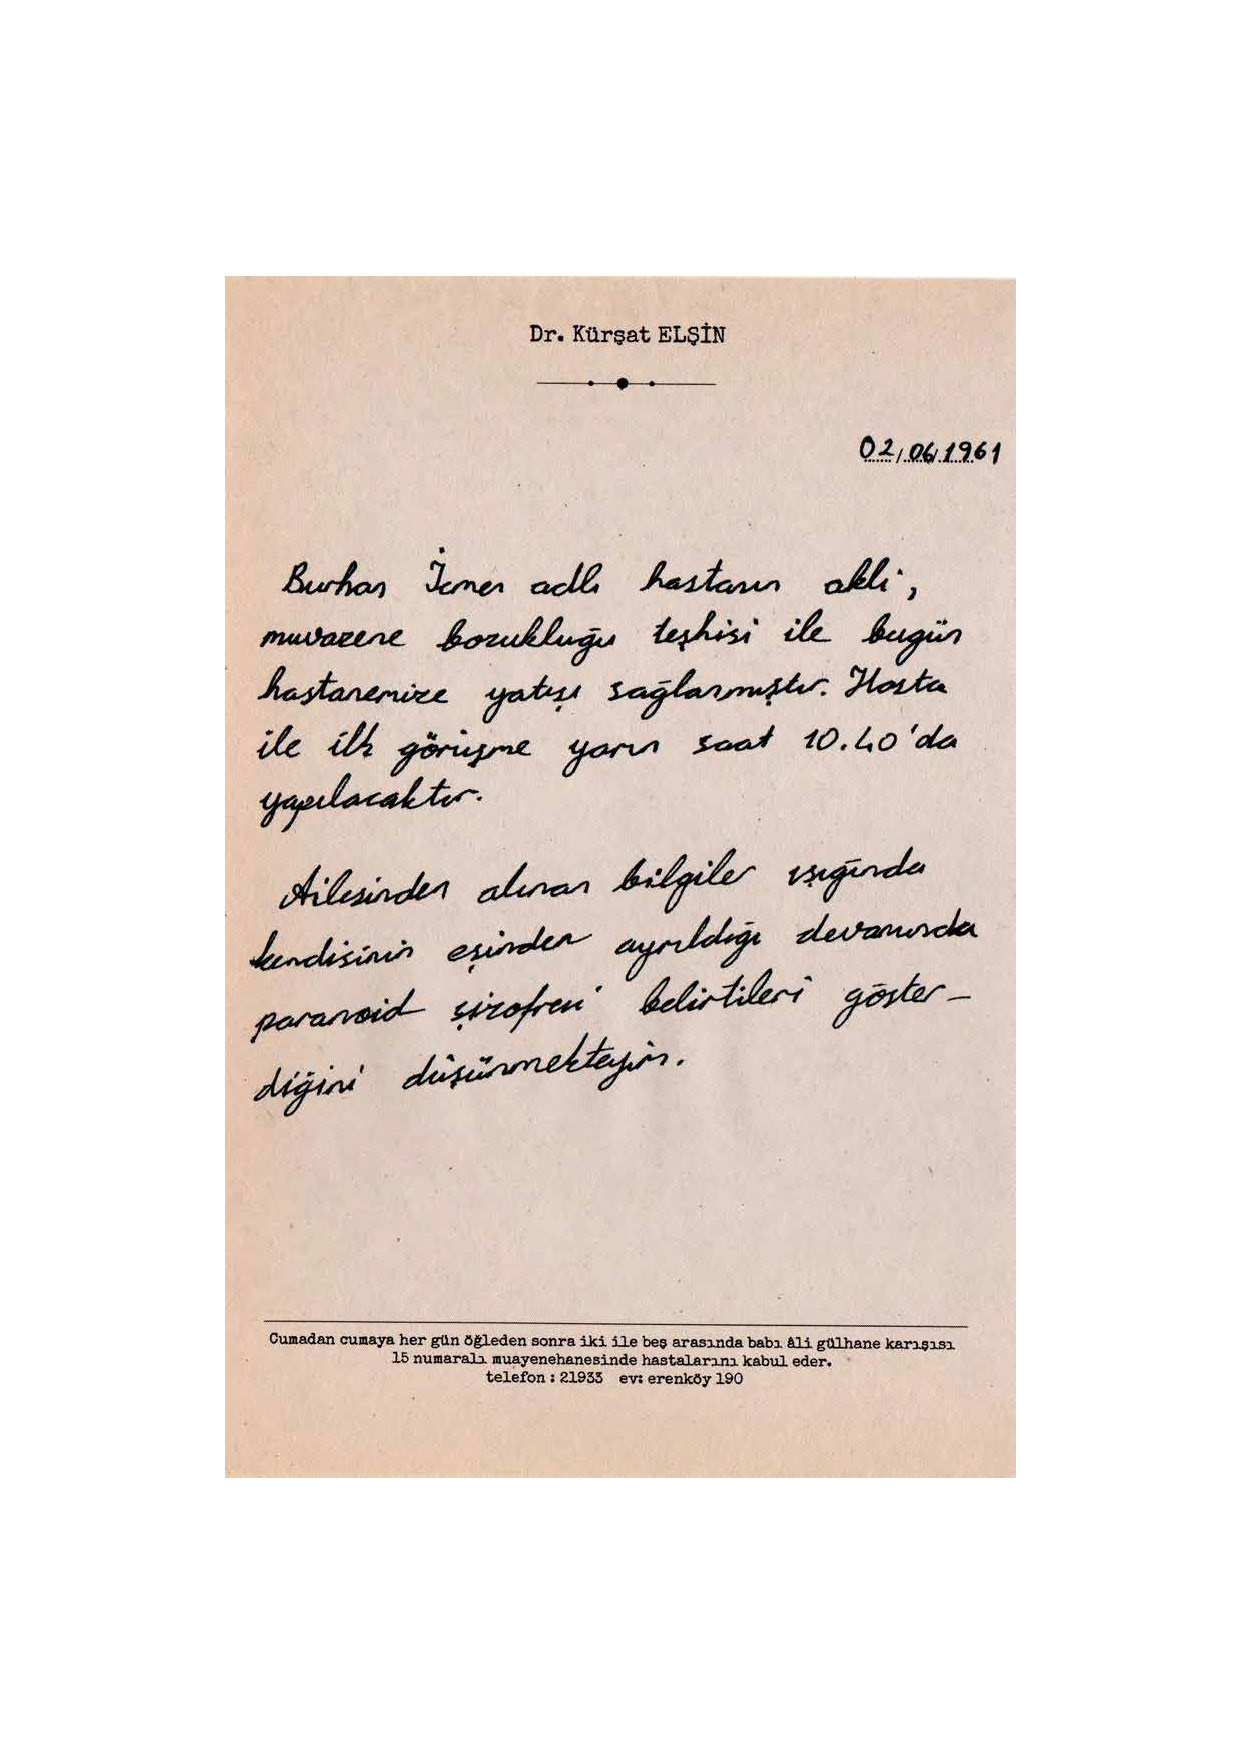 Dr. Kürşat ELŞİN
02/06/1961
Burhan İcmen adlı hastanın akli,
muvazene bozukluğu teşhisi ile bugün
hastanemize yatışı sağlanmıştır. Hasta
ile ilk görüşme yarın saat 10.40'da
yapılacaktır.
Ailesinden alınan bilgiler ışığında
kendisinin eşinden ayrıldığı devamında
paranoid şizofreni belirtileri göster-
diğini düşünmekteyim.
Cumadan cumaya her gün öğleden sonra iki ile beş arasında babı âli gülhane karışısı
15 numaralı muayenehanesinde hastalarını kabul eder.
telefon : 21933 ev: erenköy 190